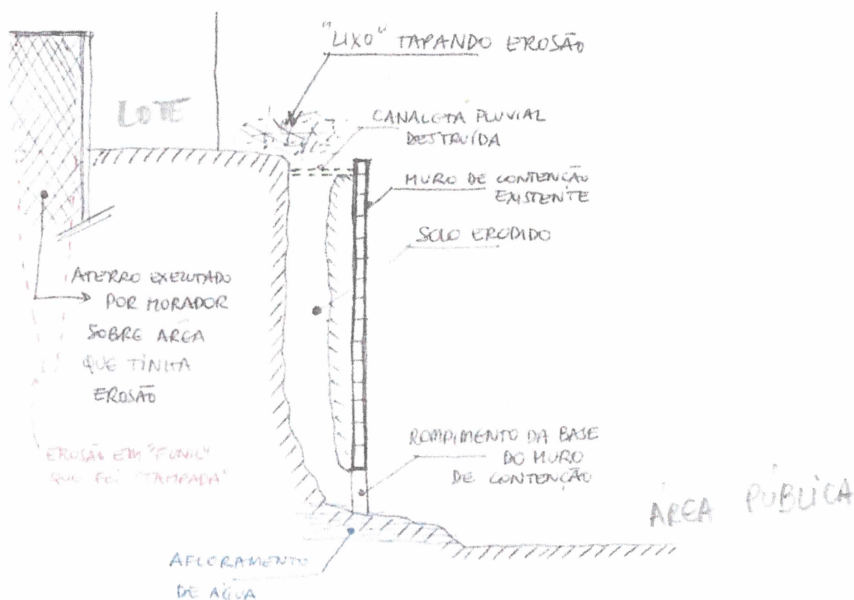 "LIXO" TAPANDO EROSÃO
LOTE
CANALETA PLUVIAL
DESTRUÍDA
MURO DE CONTENÇÃO
EXISTENTE
SOLO ERODIDO
ATERRO EXECUTADO
POR MORADOR
SOBRE ÁREA
QUE TINHA
EROSÃO
EROSÃO EM "FUNIL"
QUE FOI "TAMPADA"
ROMPIMENTO DA BASE
DO MURO
DE CONTENÇÃO
ÁREA PÚBLICA
AFLORAMENTO
DE ÁGUA